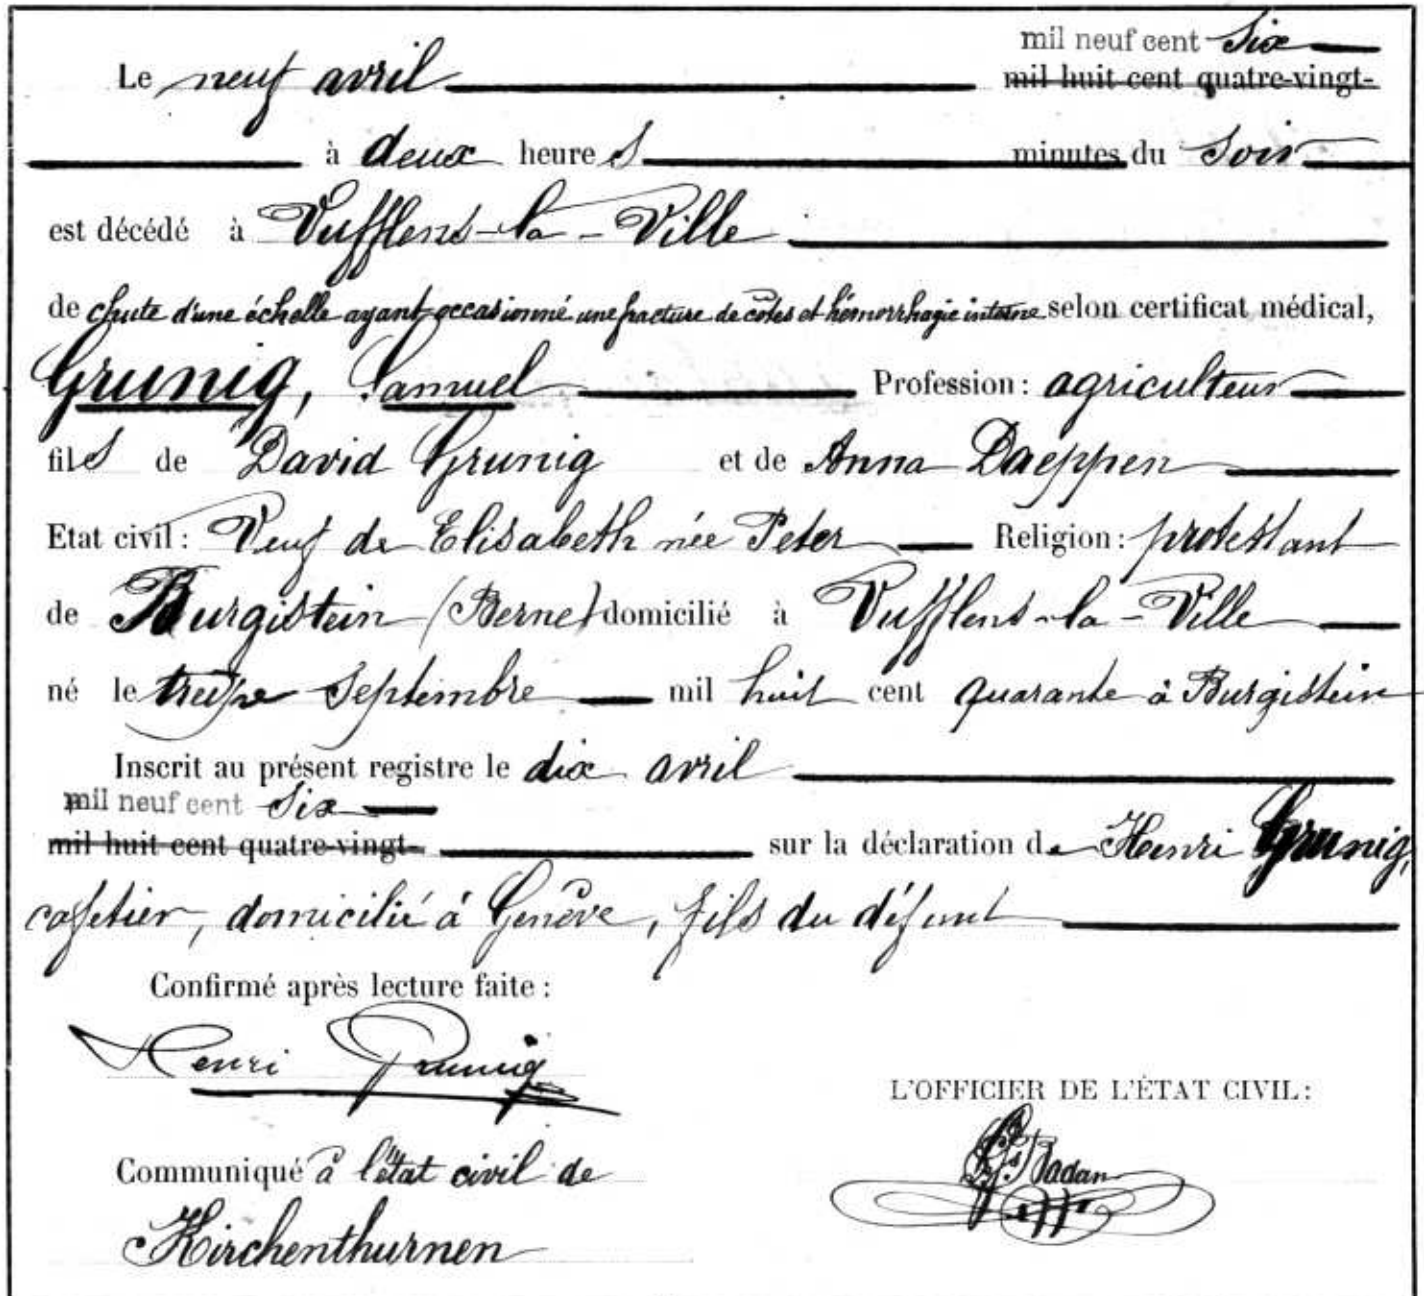 mil neuf cent six
Le neuf avril mil huit cent quatre-vingt-
à deux heures minutes du soir
est décédé à Vufflens-la-Ville
de chute d'une échelle ayant occasionné une fracture de côtes et hémorrhagie interne selon certificat médical,
Grunig, Samuel Profession: agriculteur
fils de David Grunig et de Anna Daeppen
Etat civil: Veuf de Elisabeth née Peter Religion: protestant
de Burgistein (Berne) domicilié à Vufflens-la-Ville
né le treize septembre mil huit cent quarante à Burgistein
Inscrit au présent registre le dix avril
mil neuf cent six
mil huit cent quatre-vingt- sur la déclaration de Henri Grunig,
cafetier, domicilié à Genève, fils du défunt
Confirmé après lecture faite:
Henri Grunig
L'OFFICIER DE L'ÉTAT CIVIL:
Badan
Communiqué à l'état civil de
Kirchenthurnen